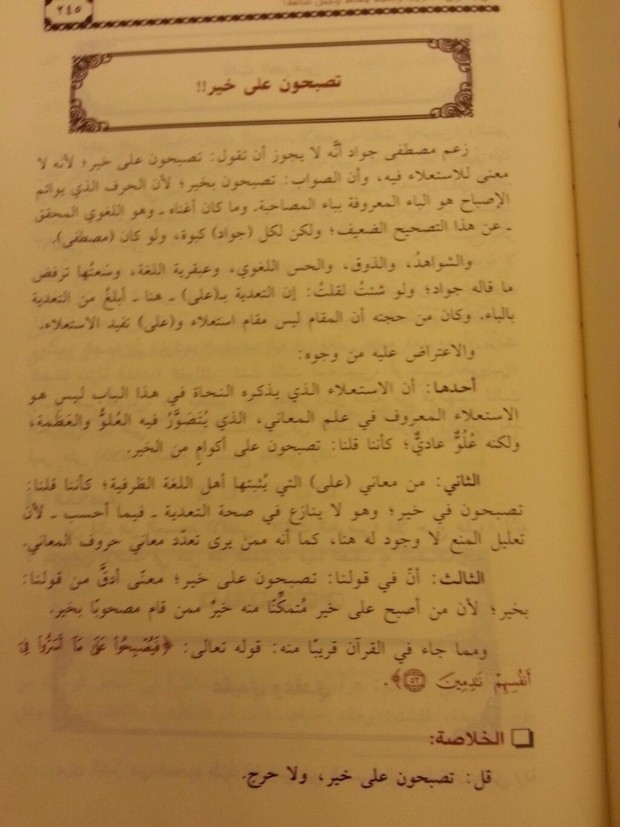 ٢٤٥
تصبحون على خير!!
زعم مصطفى جواد أنَّه لا يجوز أن تقول: تصبحون على خير؛ لأنه لا
معنى للاستعلاء فيه، وأن الصواب: تصبحون بخير؛ لأن الحرف الذي يوائم
الإصباح هو الباء المعروفة بباء المصاحبة. وما كان أغناه ـ وهو اللغوي المحقق
ـ عن هذا التصحيح الضعيف؛ ولكن لكل (جواد) كبوة، ولو كان (مصطفى).
والشواهدُ، والذوق، والحس اللغوي، وعبقرية اللغة، وسَعتُها ترفض
ما قاله جواد؛ ولو شئتُ لقلتُ: إن التعدية بـ(على) ـ هنا ـ أبلغُ من التعدية
بالباء. وكان من حجته أن المقام ليس مقام استعلاء و(على) تفيد الاستعلاء.
والاعتراض عليه من وجوه:
أحدها: أن الاستعلاء الذي يذكره النحاة في هذا الباب ليس هو
الاستعلاء المعروف في علم المعاني، الذي يُتَصَوَّرُ فيه العُلوُّ والعَظَمة،
ولكنه عُلُوٌّ عاديٌّ؛ كأننا قلنا: تصبحون على أكوامٍ من الخير.
الثاني: من معاني (على) التي يُثبتها أهل اللغة الظرفية؛ كأننا قلنا:
تصبحون في خير؛ وهو لا ينازع في صحة التعدية ـ فيما أحسب ـ لأن
تعليل المنع لا وجود له هنا، كما أنه ممن يرى تعدّد معاني حروف المعاني.
الثالث: أنّ في قولنا: تصبحون على خير؛ معنًى أدقَّ من قولنا:
بخير؛ لأن من أصبح على خير مُتمكِّنًا منه خيرٌ ممن قام مصحوبًا بخير.
ومما جاء في القرآن قريبًا منه: قوله تعالى: ﴿فَيُصْبِحُوا۟ عَلَىٰ مَآ أَسَرُّوا۟ فِىٓ
أَنفُسِهِمْ نَٰدِمِينَ ۝٥٢﴾.
الخلاصة:
قل: تصبحون على خير، ولا حرج.